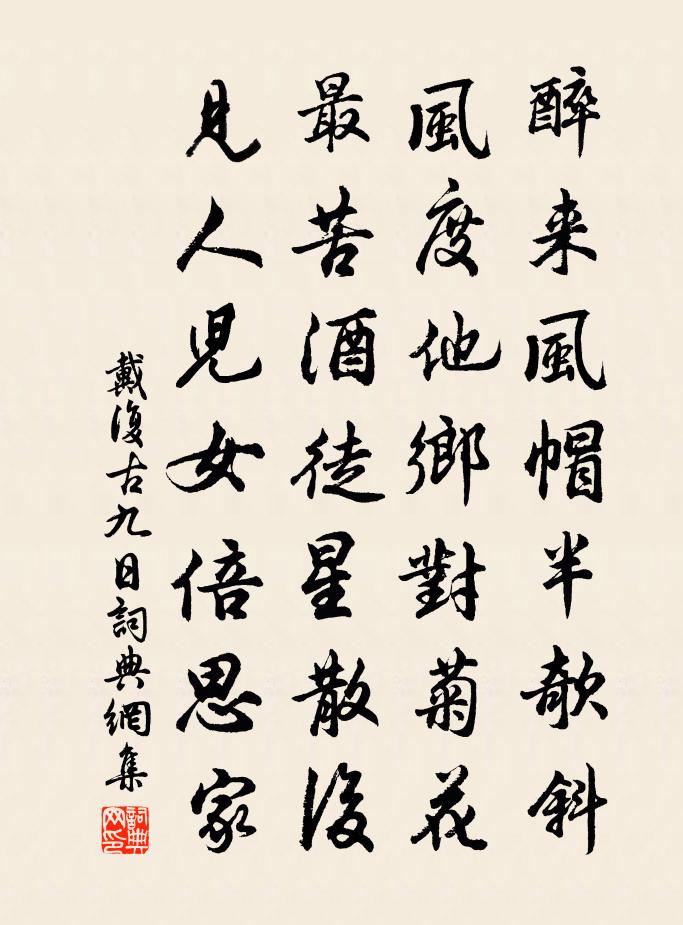 醉来風帽半欹斜
風度他鄉對菊花
最苦酒徒星散後
見人児女倍思家
戴復古九日詞典網集
詞典
网印